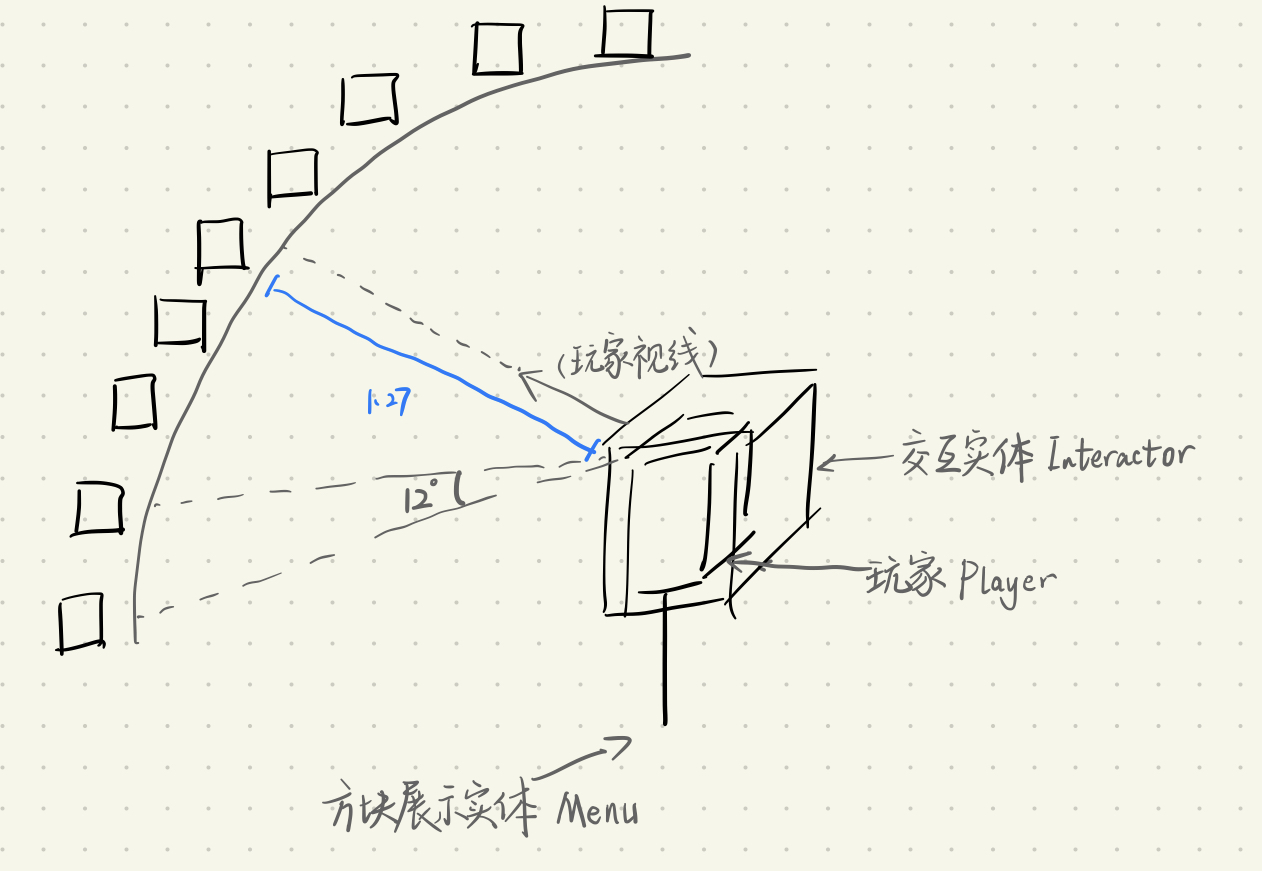 (玩家视线)
1.27
交互实体 Interactor
12°
玩家 Player
方块展示实体 Menu